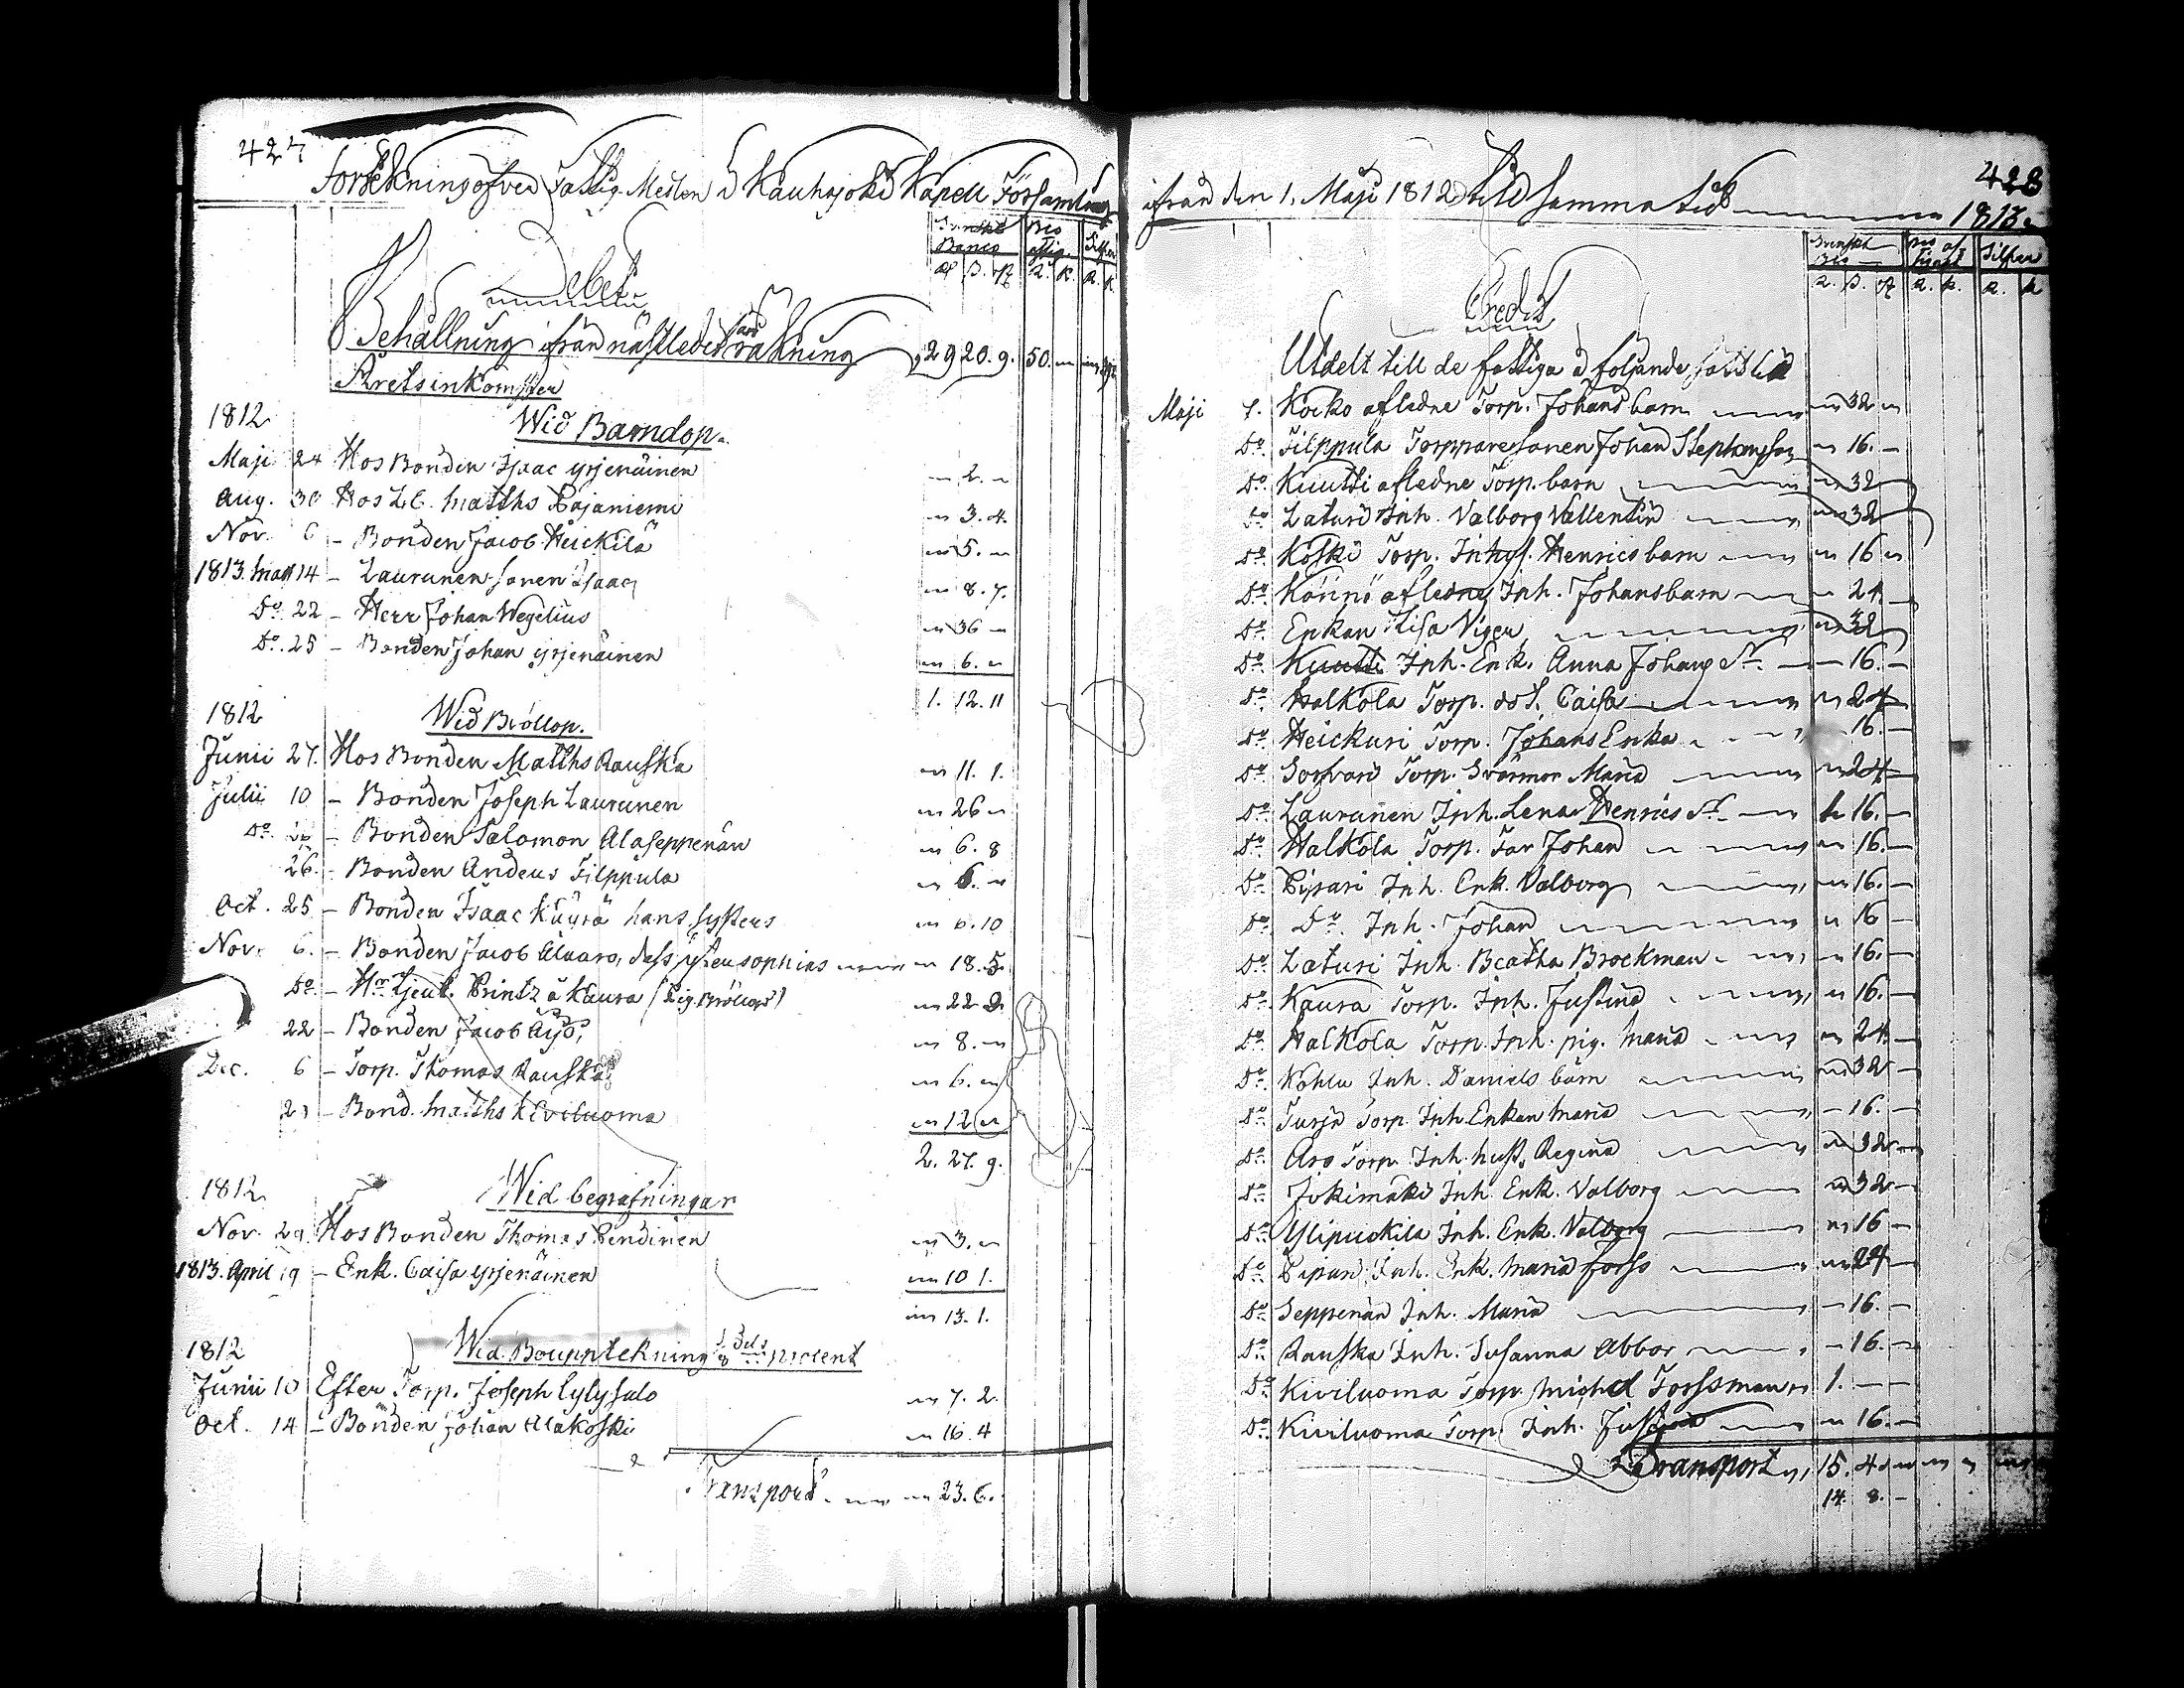 427
Förtekning öfver Fattig-Medlen i Kauhajoki Kapell Församling
Svenskt Banco | Rko Assig | Silfver
Rd ß. rst | R. K. | R. K.
Debet
Behållning ifrån nästledit års räkning 29 20. 9. 50.
Årets inkomster
1812
Wid Barndop.
Maji 24 Hos Bonden Isaac Yrjenäinen 2.
Aug. 30 Hos Matths Pajaniemi 3. 4.
Nov. 6 - Bonden Jacob Heickilä 5.
1813. Mart 14 - Laurunen sonen Isaac 8. 7.
Do. 22 - Herr Johan Wegelius 36
Do. 25 - Bonden Johan Yrjenäinen 6.
1. 12. 11
1812
Wid Bröllop.
Junii 27. Hos Bonden Matths Rauska 11. 1.
Julii 10 - Bonden Joseph Laurunen 26
Do. - Bonden Salomon Alaseppenän 6. 8
26. - Bonden Andeus Filppula 6.
Oct. 25 - Bonden Isaac Küÿrä hans systers 6. 10
Nov. 6. - Bonden Jacob Aluaro, dess Sophias 18. 5.
Do. - Hr Ljeut. Printz å Kaura (Pig. Bröllop) 22
22 - Bonden Jacob 8.
Dec. 6 - Torp. Thomas Rauska 6.
- Bond. Matths Kiviluoma 12
2. 27. 9.
1812
Wid begrafningar
Nov. 29. Hos Bonden Thomas Pendinen 3.
1813. April 19 - Enk. Caisa Yrjenäinen 10 1.
13. 1.
1812
Wid Bouppteckning 1/8 Dels procent
Junii 10 Efter Torp. Joseph Lylysalo 7. 2.
Oct. 14 - Bonden Johan Alakoski 16. 4
Transport 23. 6.
ifrån den 1. Maji 1812 till samma tid 1813.
428
Svenskt Bco | Rko assign | Silfver
R. ß. rst | R. K. | R. K
Credit
Utdelt till de fattiga å följande sätt
Maji 1. Koiko afledne Torp. Johans barn 32
Do. Filppula Torppare sonen Johan Stephansson 16.
Do. Kuutti afledne Torp. barn 32
Do. Laturi Inh. Valborg Vallentin 32
Do. Koski Torp. Inhys. Henrics barn 16
Do. Könnö afledne Inh. Johans barn 24
Do. Enkan Lisa Viger 32
Do. Kuutti Inh. Enk. Anna Johans Dr. 16.
Do. Halkola Torp. dot. Caisa 24
Do. Heickuri Torp. Johans Enka 16.
Do. Sorfvari Torp. Svärmor Maria 24
Do. Laurunen Inh. Lena Henrics Dr. 16.
Do. Halkola Torp. Far Johan 16.
Do. Pipari Inh. Enk. Valborg 16.
Do. Do. Inh. Johan 16
Do. Laturi Inh. Beatha Brockman 16.
Do. Kaura Torp. Inh. Justina 16.
Do. Halkola Torp. Inh. pig. Maria 24.
Do. Kohlu Inh. Daniels barn 32
Do. Turja Torp. Inh. Enkan Maria 16.
Do. Aro Torp. Inh. hust. Regina 32
Do. Jokimäki Inh. Enk. Valborg 32
Do. Ylipuskila Inh. Enk. Valborg 16
Do. Pipari Inh. Enk. Maria Forss 24
Do. Seppenän Inh. Maria 16.
Do. Rauska Inh. Susanna Abbor 16.
Do. Kiviluoma Torp. Michel Forssman 1.
Do. Kiviluoma Torp. Inh. Justina 16.
Transport 15. 4
14. 8.